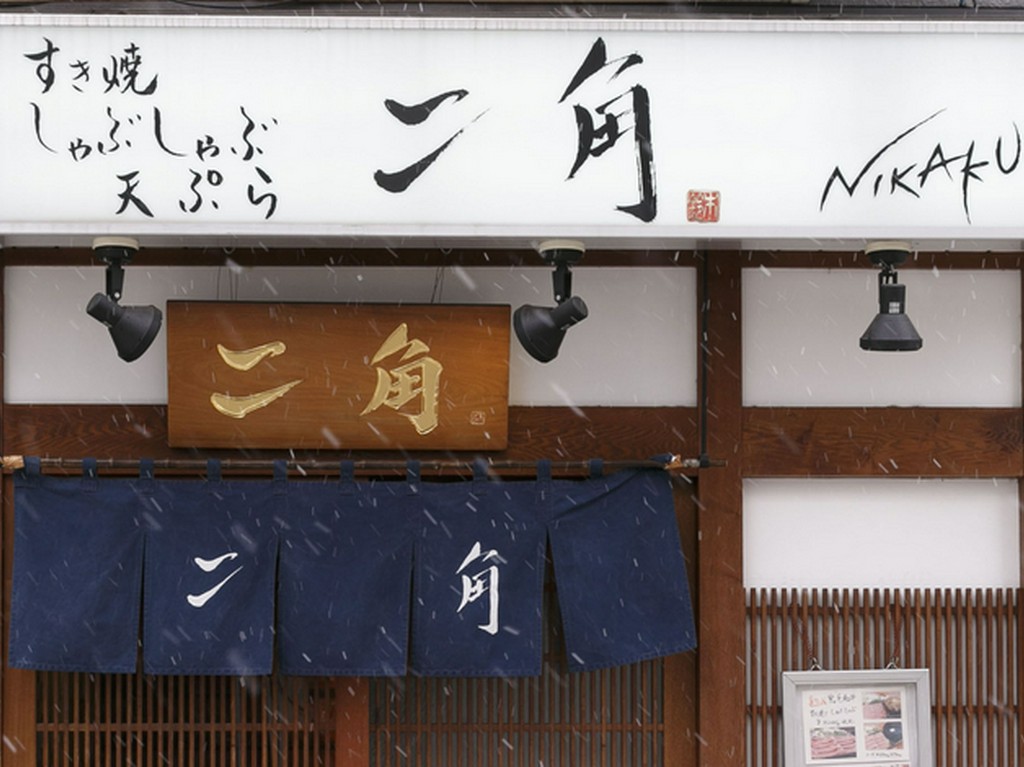 すき焼
しゃぶしゃぶ
天ぷら
二角
NIKAKU
二角
二角